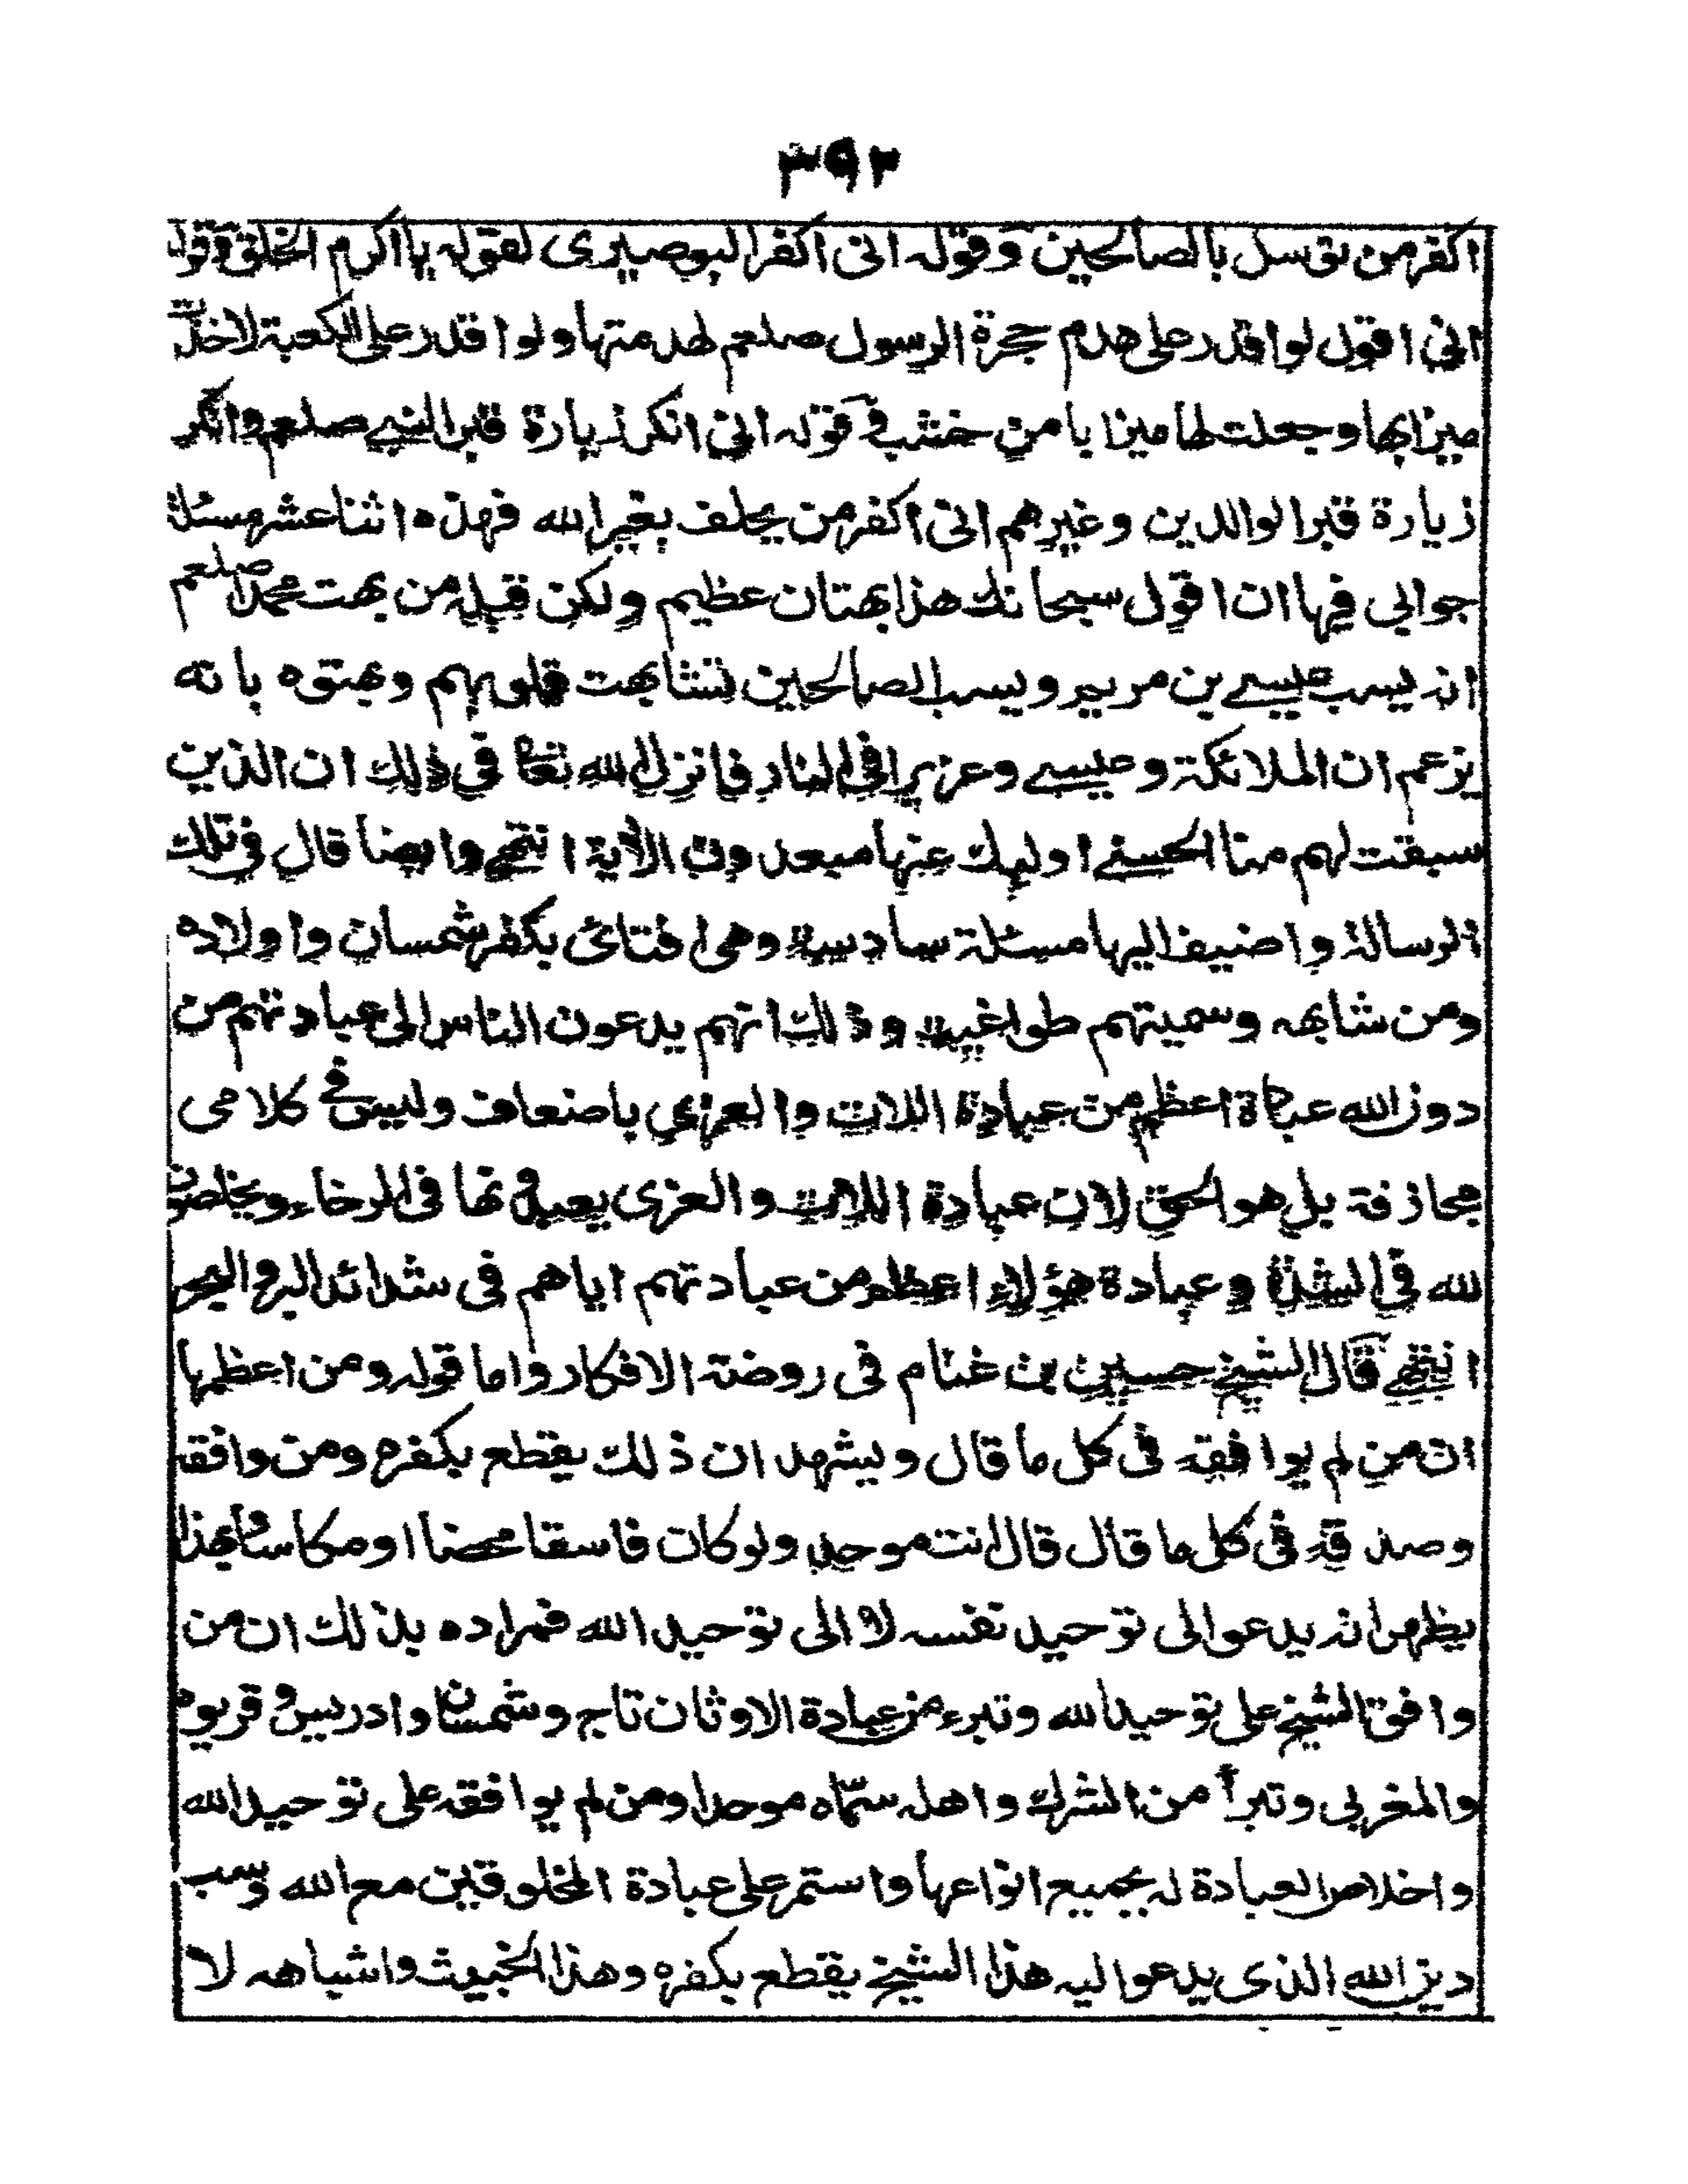 ٣٩٢
اكفر من توسل بالصالحين وقوله انى اكفر البوصيرى لقوله يا اكرم الخلق وقوله
انى اقول لو اقدر على هدم حجرة الرسول صلعم لهدمتها ولو اقدر على الكعبة لاخذت
ميزابها وجعلت لها ميزابا من خشب وقوله انى انكر زيارة قبر النبى صلعم وانكر
زيارة قبر الوالدين وغيرهم انى اكفر من يحلف بغير الله فهذه اثنا عشر مسئلة
جوابى فيها ان اقول سبحانك هذا بهتان عظيم ولكن قبله من بهت محمدا صلعم
انه يسب عيسى بن مريم ويسب الصالحين تشابهت قلوبهم وبهتوه بانه
يزعم ان الملائكة وعيسى وعزيرا فى النار فانزل الله تعالى فى ذلك ان الذين
سبقت لهم منا الحسنى اولئك عنها مبعدون الآية انتهى وايضا قال فى تلك
الرسالة واضيف اليها مسئلة سادسة وهى افتائى بكفر شمسان واولاده
ومن شابهه وسميتهم طواغيت وذلك انهم يدعون الناس الى عبادتهم من
دون الله عبادة اعظم من عبادة اللات والعزى باضعاف وليس فى كلامى
مجازفة بل هو الحق لان عباد اللات والعزى يعبدونها فى الرخاء ويخلصون
لله فى الشدة وعبادة هؤلاء اعظم من عبادتهم اياهم فى شدائد البر والبحر
انتهى قال الشيخ حسين بن غنام فى روضة الافكار واما قوله ومن اعظمها
ان من لم يوافقه فى كل ما قال ويشهد ان ذلك يقطع بكفره ومن وافقه
وصدقه فى كل ما قال قال انت موحد ولو كان فاسقا محضا او مكاسا وبهذا
يظهر انه يدعو الى توحيد نفسه لا الى توحيد الله فمراده بذلك ان من
وافق الشيخ على توحيد الله وتبرء من عبادة الاوثان تاج وشمسان وادريس وقريوه
والمغربى وتبرأ من الشرك واهله سمّاه موحدا ومن لم يوافقه على توحيد الله
واخلاص العبادة له بجميع انواعها واستمر على عبادة المخلوقين مع الله وسب
دين الله الذى يدعو اليه هذا الشيخ يقطع بكفره وهذا الخبيث واشباهه لا